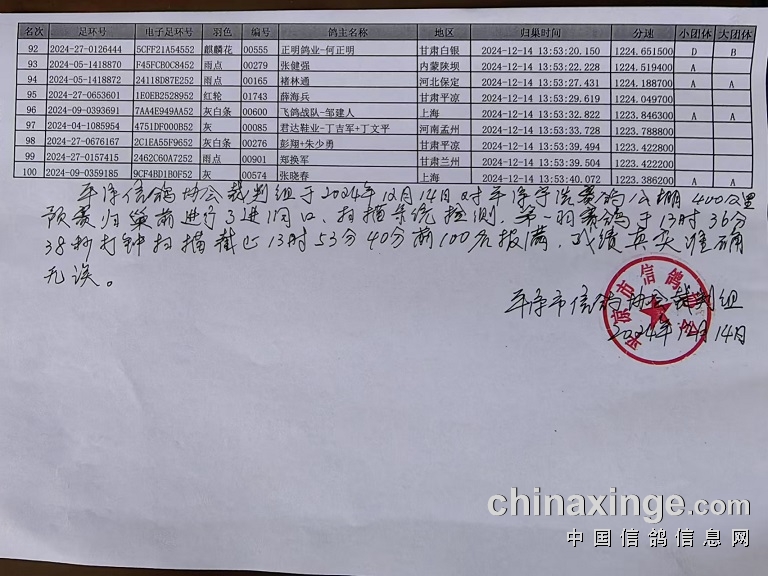 名次 足环号 电子足环号 羽色 编号 鸽主名称 地区 归巢时间 分速 小团体 大团体
92 2024-27-0126444 5CFF21A54552 麒麟花 00555 正明鸽业-何正明 甘肃白银 2024-12-14 13:53:20.150 1224.651500 D B
93 2024-05-1418870 F45FCB0C8452 雨点 00279 张健强 内蒙陕坝 2024-12-14 13:53:22.228 1224.519400 A
94 2024-05-1418872 24118D87E252 雨点 00165 褚林通 河北保定 2024-12-14 13:53:27.431 1224.188700 A A
95 2024-27-0653601 1E0EB2528952 红轮 01743 薛海兵 甘肃平凉 2024-12-14 13:53:29.619 1224.049700
96 2024-09-0393691 7AA4E949AA52 灰白条 00600 飞鸽战队-邹建人 上海 2024-12-14 13:53:32.822 1223.846300 A A
97 2024-04-1085954 4751DF000B52 灰 00085 君达鞋业-丁吉军+丁文平 河南孟州 2024-12-14 13:53:33.728 1223.788800
98 2024-27-0676167 2C1EA55F9652 灰白条 00276 彭翔+朱少勇 甘肃平凉 2024-12-14 13:53:39.494 1223.422800
99 2024-27-0157415 2462C60A7252 雨点 00901 郑换军 甘肃兰州 2024-12-14 13:53:39.504 1223.422200
100 2024-09-0359185 9CF4BD1B0F52 灰 00574 张晓春 上海 2024-12-14 13:53:40.072 1223.386100 A A
平凉信鸽协会裁判组于2024年12月14日对平凉宇浩赛鸽公棚400公里
预赛归巢前进行了进门口、扫描系统检测,第一羽赛鸽于13时36分
38秒打钟扫描截止13时53分40分前100名报满,成绩真实准确
无误。
平凉市信鸽协会裁判组
2024年12月14日
chinaxinge.com
中国信鸽信息网